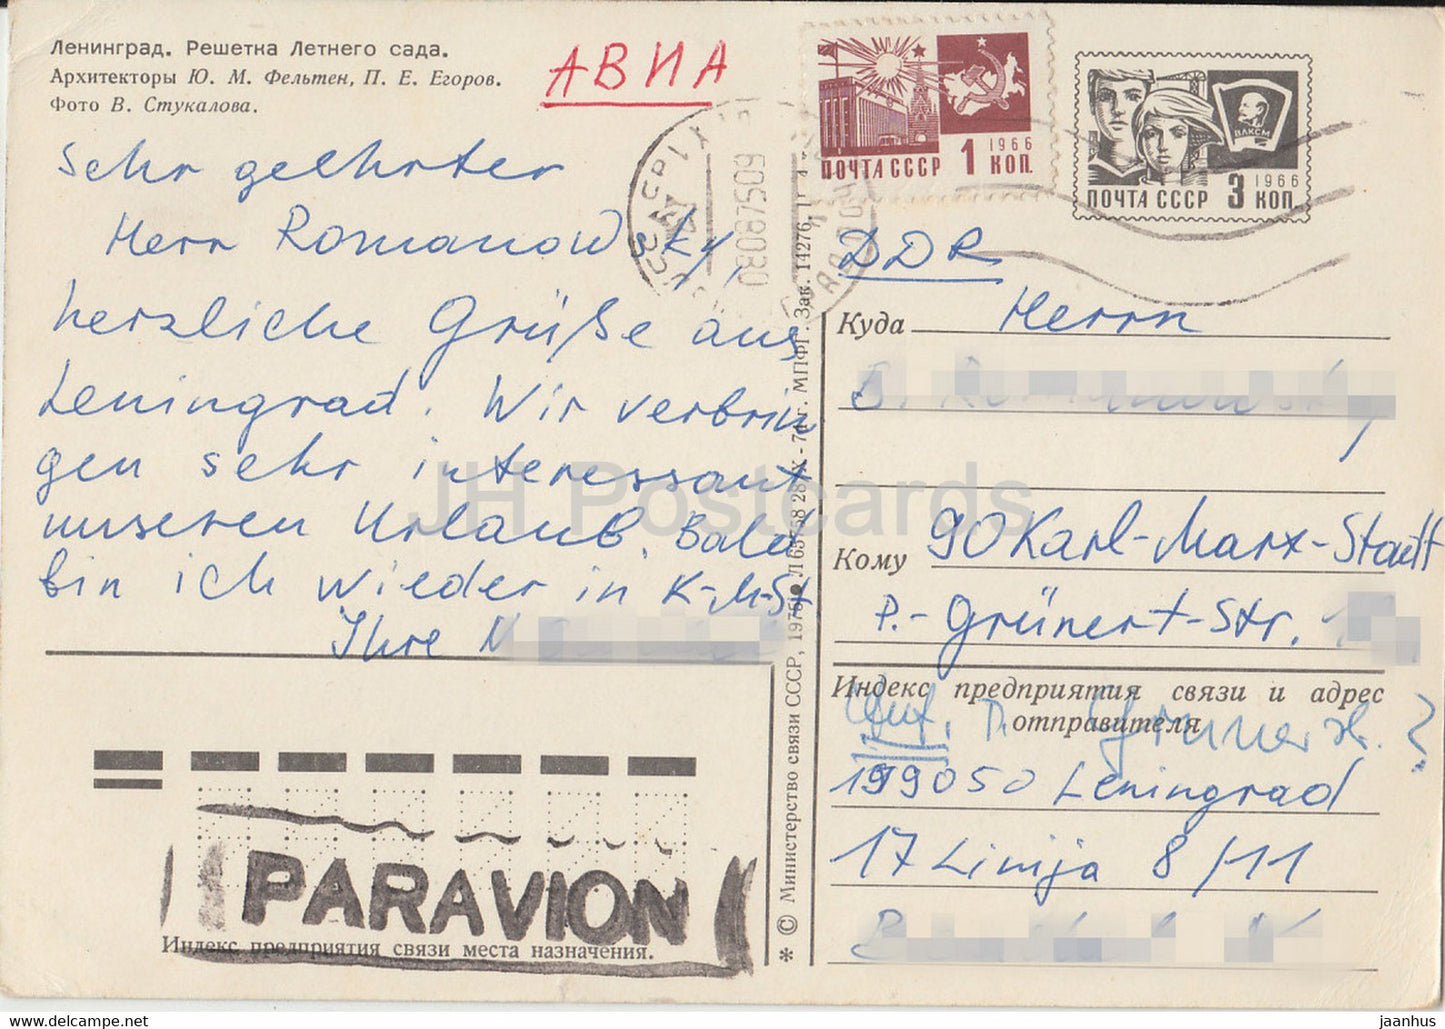 Ленинград. Решетка Летнего сада.
Архитекторы Ю. М. Фельтен, П. Е. Егоров.
Фото В. Стукалова.
АВИА
Sehr geehrter
Herr Romanowsky,
herzliche Grüße aus
Leningrad. Wir verbrin
gen sehr interessant
unseren Urlaub. Bald
bin ich wieder in K-M-St
Ihre N
ПОЧТА СССР 1 КОП.
1966
ВЛКСМ
1966
ПОЧТА СССР 3 КОП.
DDR
Куда Herrn
Кому 90 Karl-Marx-Stadt
P.-Grünert-Str. 1
Индекс предприятия связи и адрес
отправителя
199050 Leningrad
17 Linija 8/11
PARAVION
Индекс предприятия связи места назначения.
* © Министерство связи СССР, 1975. Зак. 14276.
JH Postcards
www.delcampe.net
jaanhus